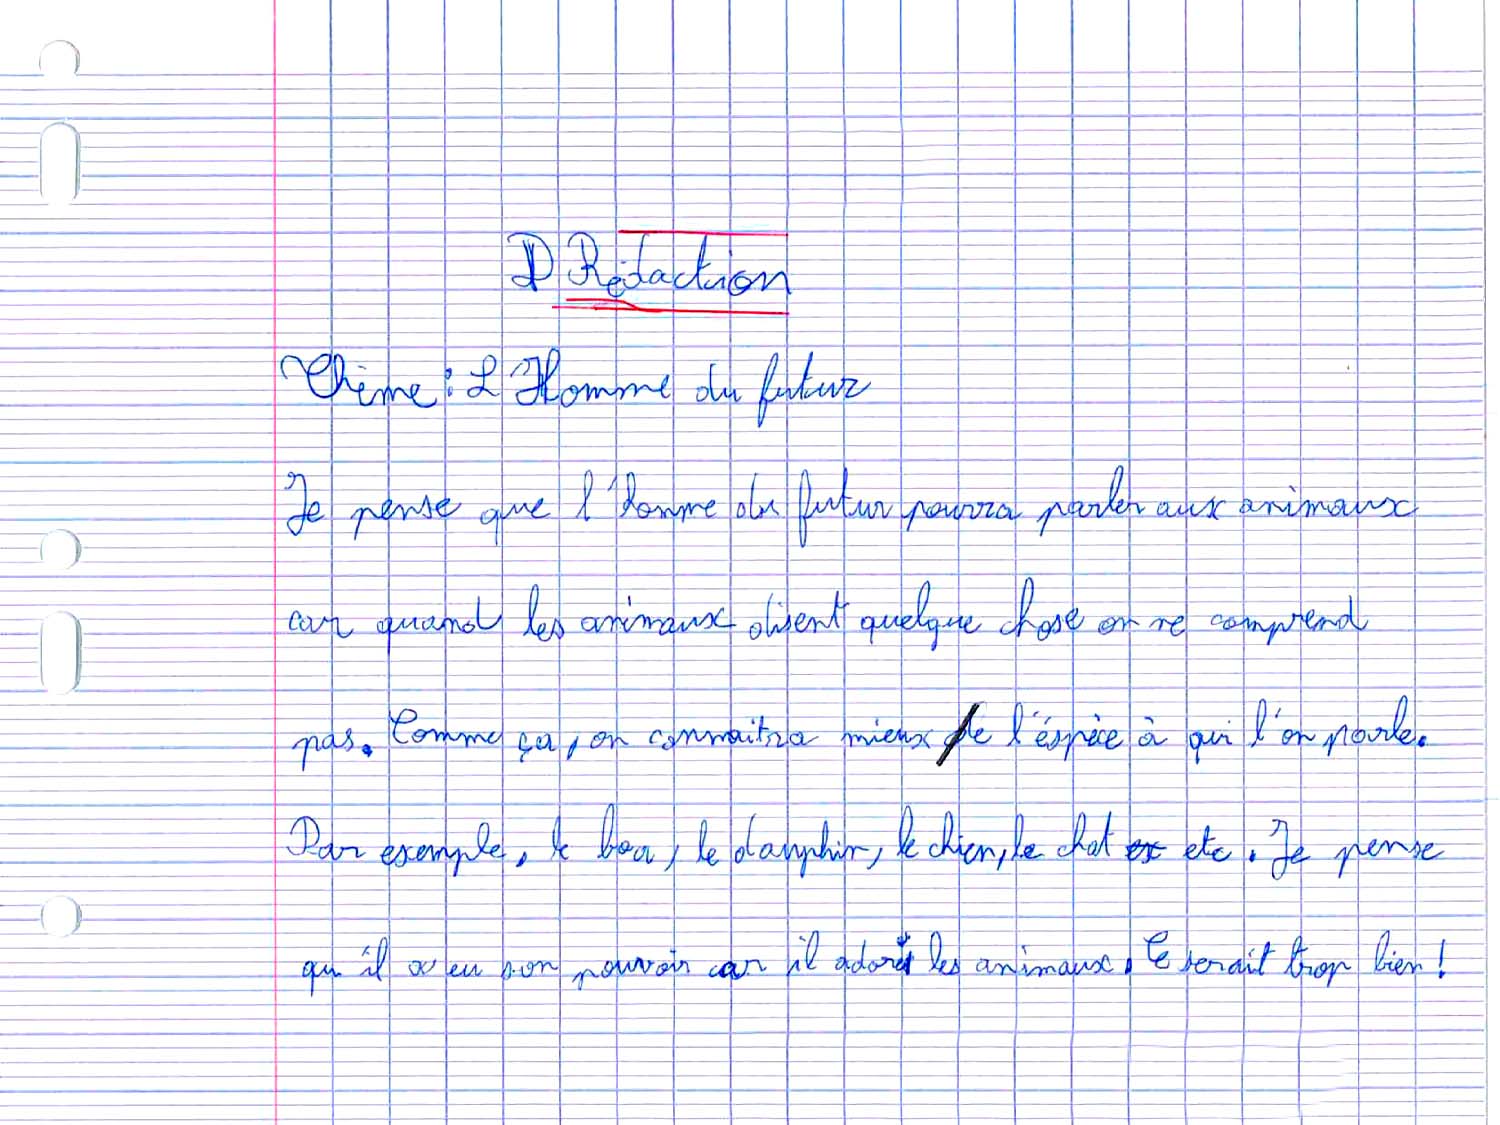 Rédaction
Thème : L'Homme du futur
Je pense que l'homme du futur pourra parler aux animaux
car quand les animaux disent quelque chose on ne comprend
pas. Comme ça, on connaitra mieux de l'éspèce à qui l'on parle.
Par exemple, le boa, le dauphin, le chien, le chat etc. Je pense
qu'il a eu son pouvoir car il adore les animaux. Ce serait trop bien !